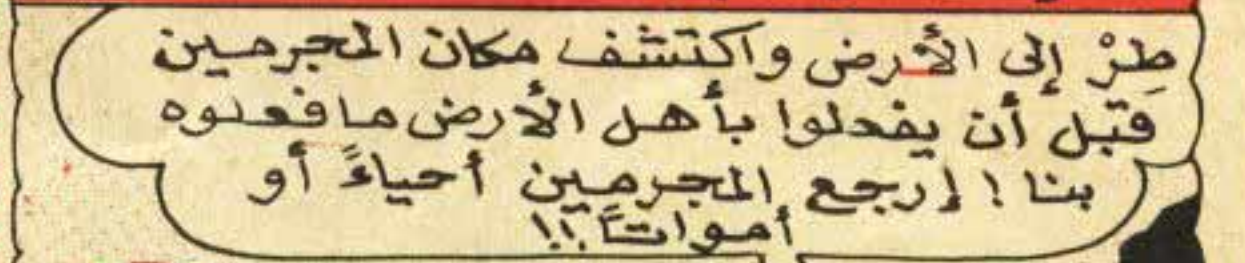 طِرْ إلى الأرض واكتشف مكان المجرمين
قبل أن يفعلوا بأهل الأرض ما فعلوه
بنا ! إرجع المجرمين أحياءً أو
أمواتاً !!